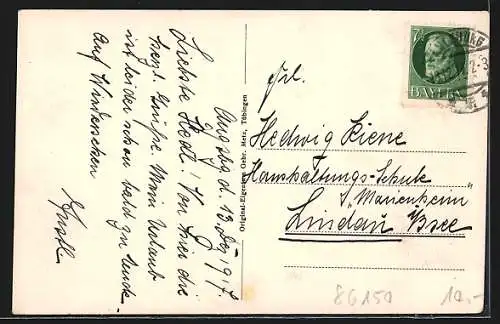 Augsbg. d. 13. Dez. 1917.
Liebste Hedl! Von hier die
herzl. Grüße. Mein Urlaub
ist leider schon bald zu Ende.
Auf Wiedersehen
Original-Eigentum Gebr. Metz, Tübingen
7½
BAYERN
Frl.
Hedwig Kiene
Haushaltungs-Schule
"Marienheim"
Lindau i/B'see
86150
10,-